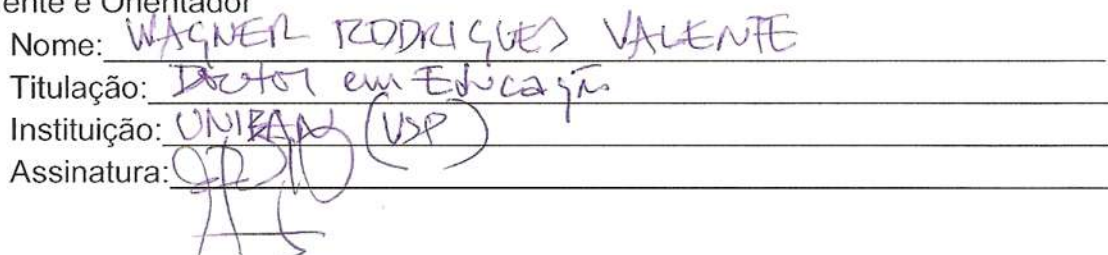 ente e Orientador
Nome: WAGNER RODRIGUES VALENTE
Titulação: Doutor em Educação
Instituição: UNIBAN (USP)
Assinatura: